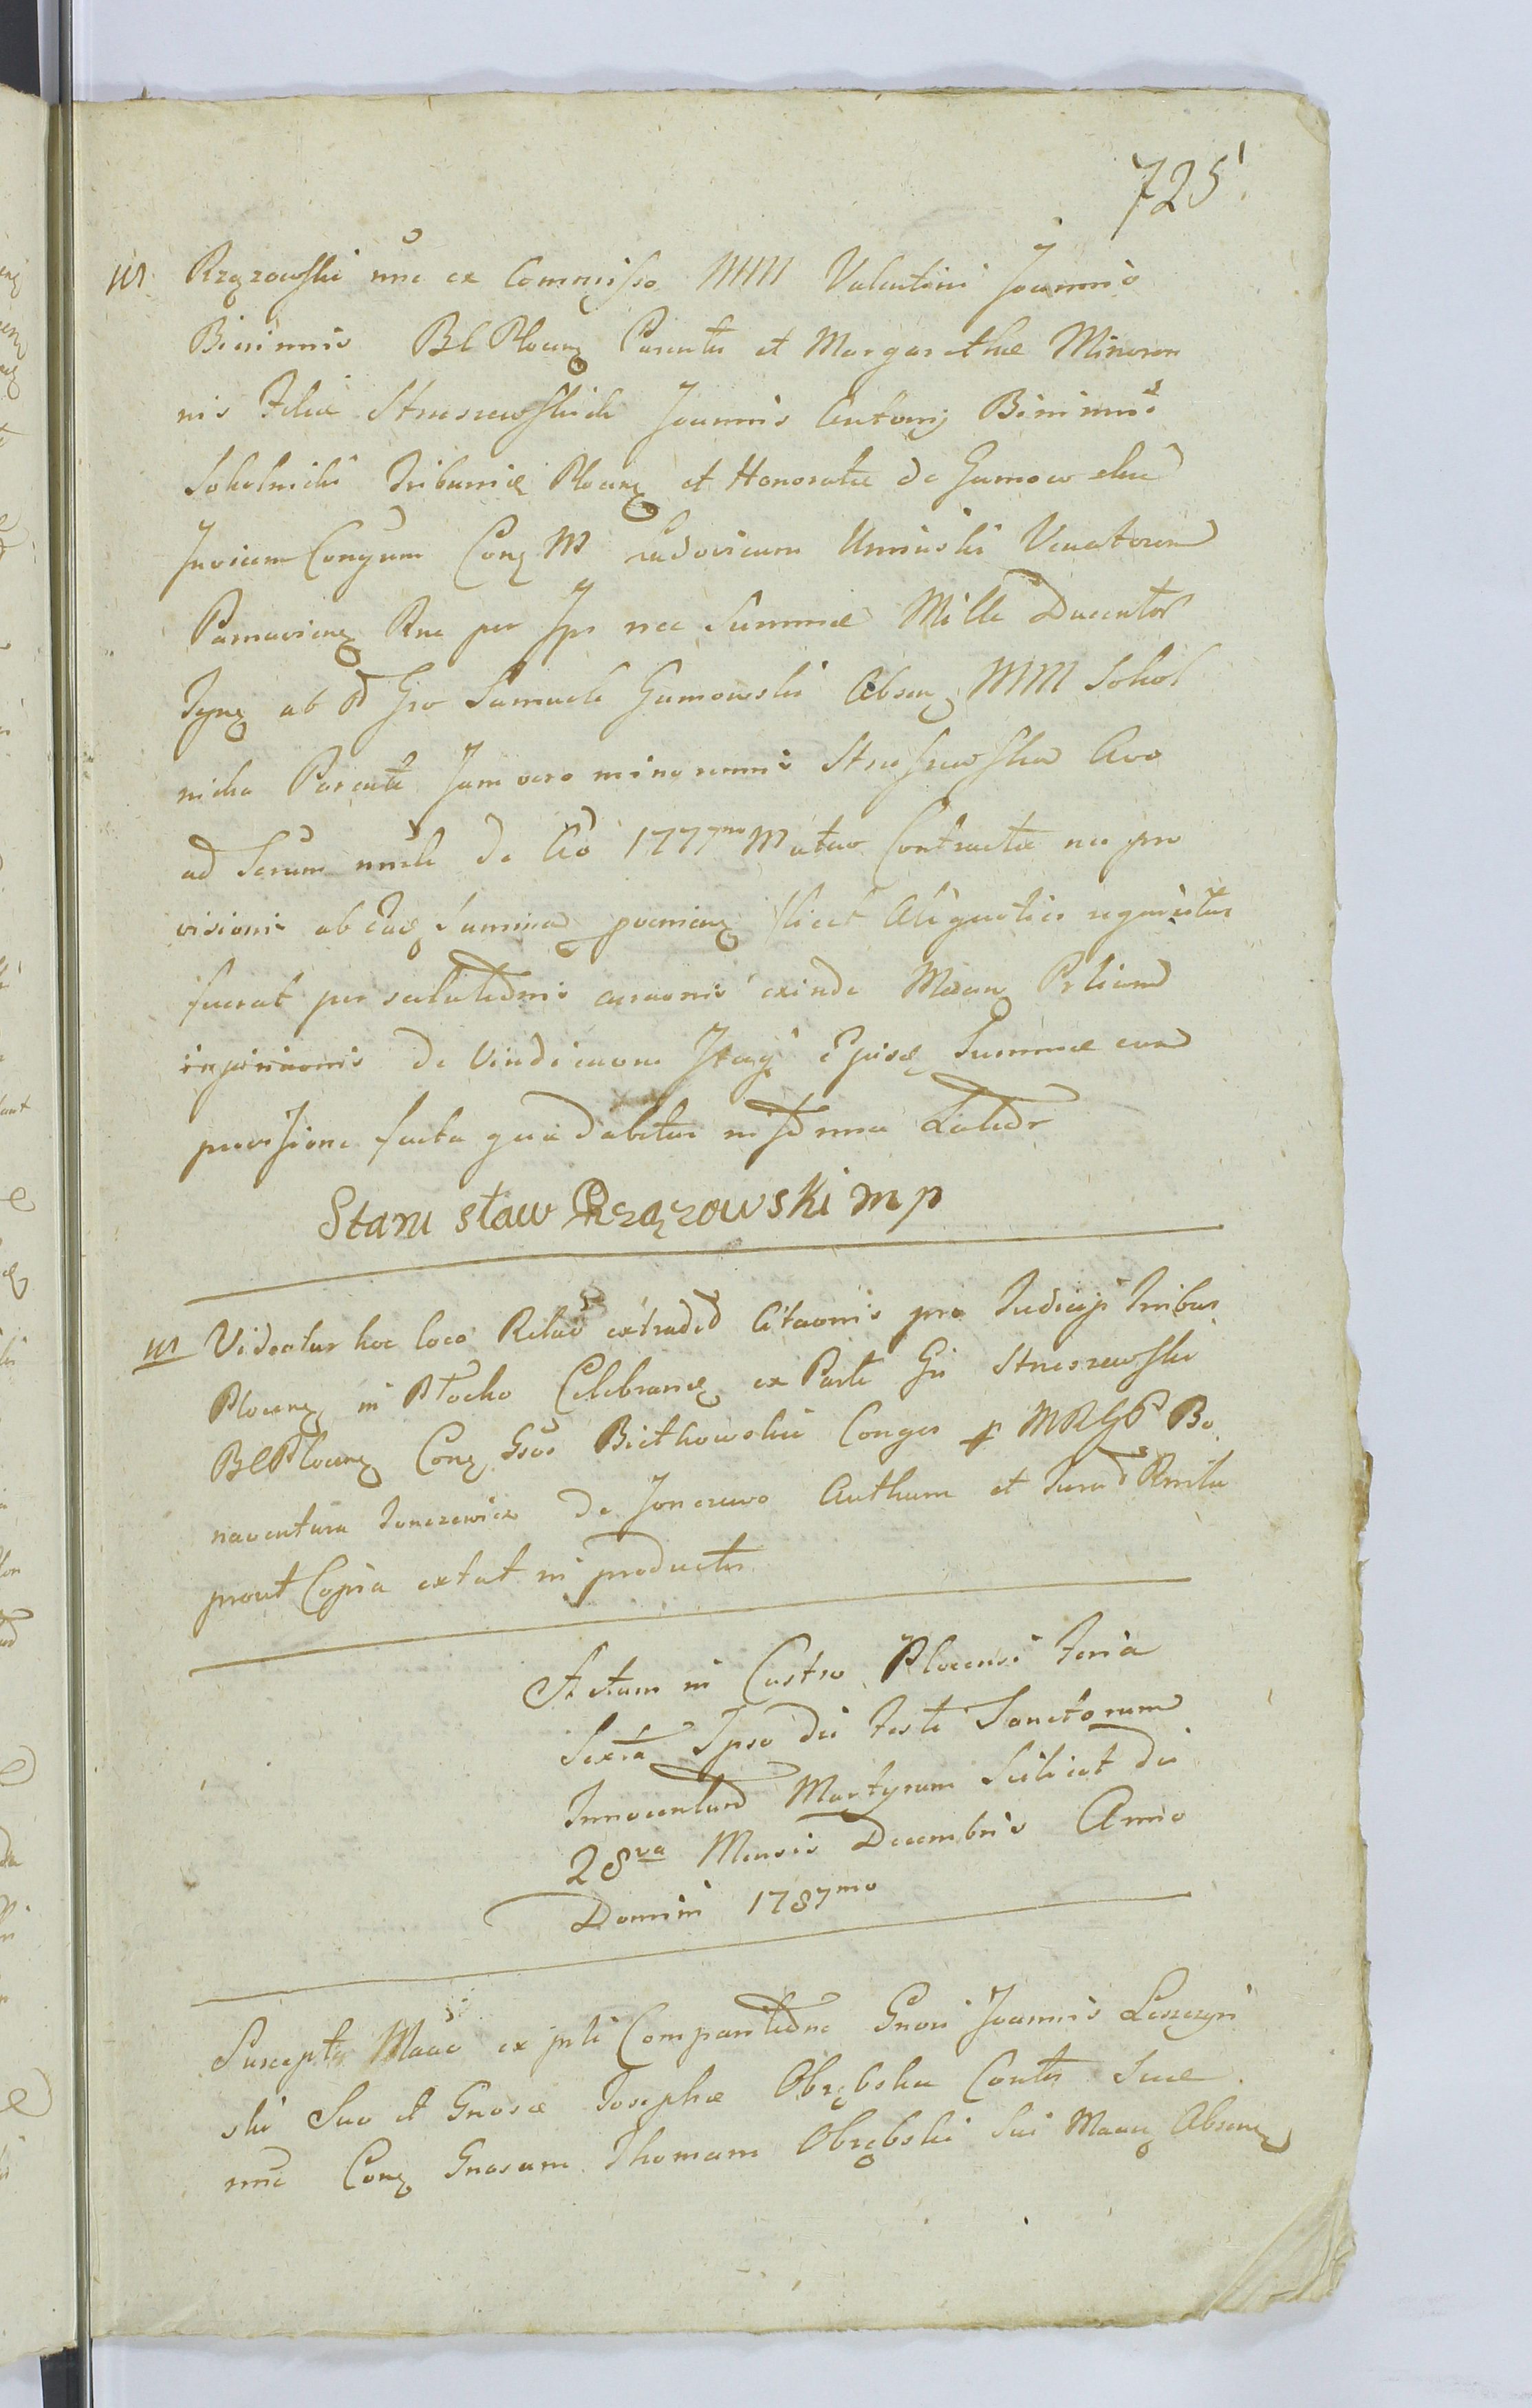 725
Rzązewski nnc ex Commisso MMM Valentini Joannis
Binimnis BL Plocen Parentis et Margarethae Minoren
nis Filiae Struszewskich Joannis Antonij Binimnis
Sokolnicki Tribunis Plocen et Honoratae de Gumow
Invicem Conjgum Con M Ludovicum Umiński Venatorem
Parnavien Rne per Ip nee Summae Mille Ducentor
Tynf ab Gso Samuele Gumowski Absen MM Sokol
nicka Parente Jam vero minorennis Struszewska Avo
ad Serum de Ao 1777mo Mutuo Contractae nec pro
visionis ab Summa proenien licet Aliquoties requisitus
fuerat per exinde Maan
de Vindicaone Summae cum
provisione facta qua dabitur in
Stanisław Rzązowski mp
Videatur hoc loco Relao extraded Citaonis pro Judicijs Tribus
Plocen in Płocko Celebran ex Parte Gsi Struszewski
BLPlocen Con Gsos Bietkowskie Conges p MRGP Bo
naventura Jonczewicz de Jonczewo Authum et Jurad
prout Copia extat in productis
Actum in Castro Plocensi Feria
Sexta Ipso die Festi Sanctorum
Innocentum Martyrum Scilicet die
28va Mensis Decembris Anno
Domini 1787mo
Suscepta Maae ex pte Comparitdne Gnosi Joannis Leszczyń
ski Suo et Gnosae Josephae Obrębska Contis Suae
nnc Con Gnosum Thomam Obrębski Sui Maan Absen